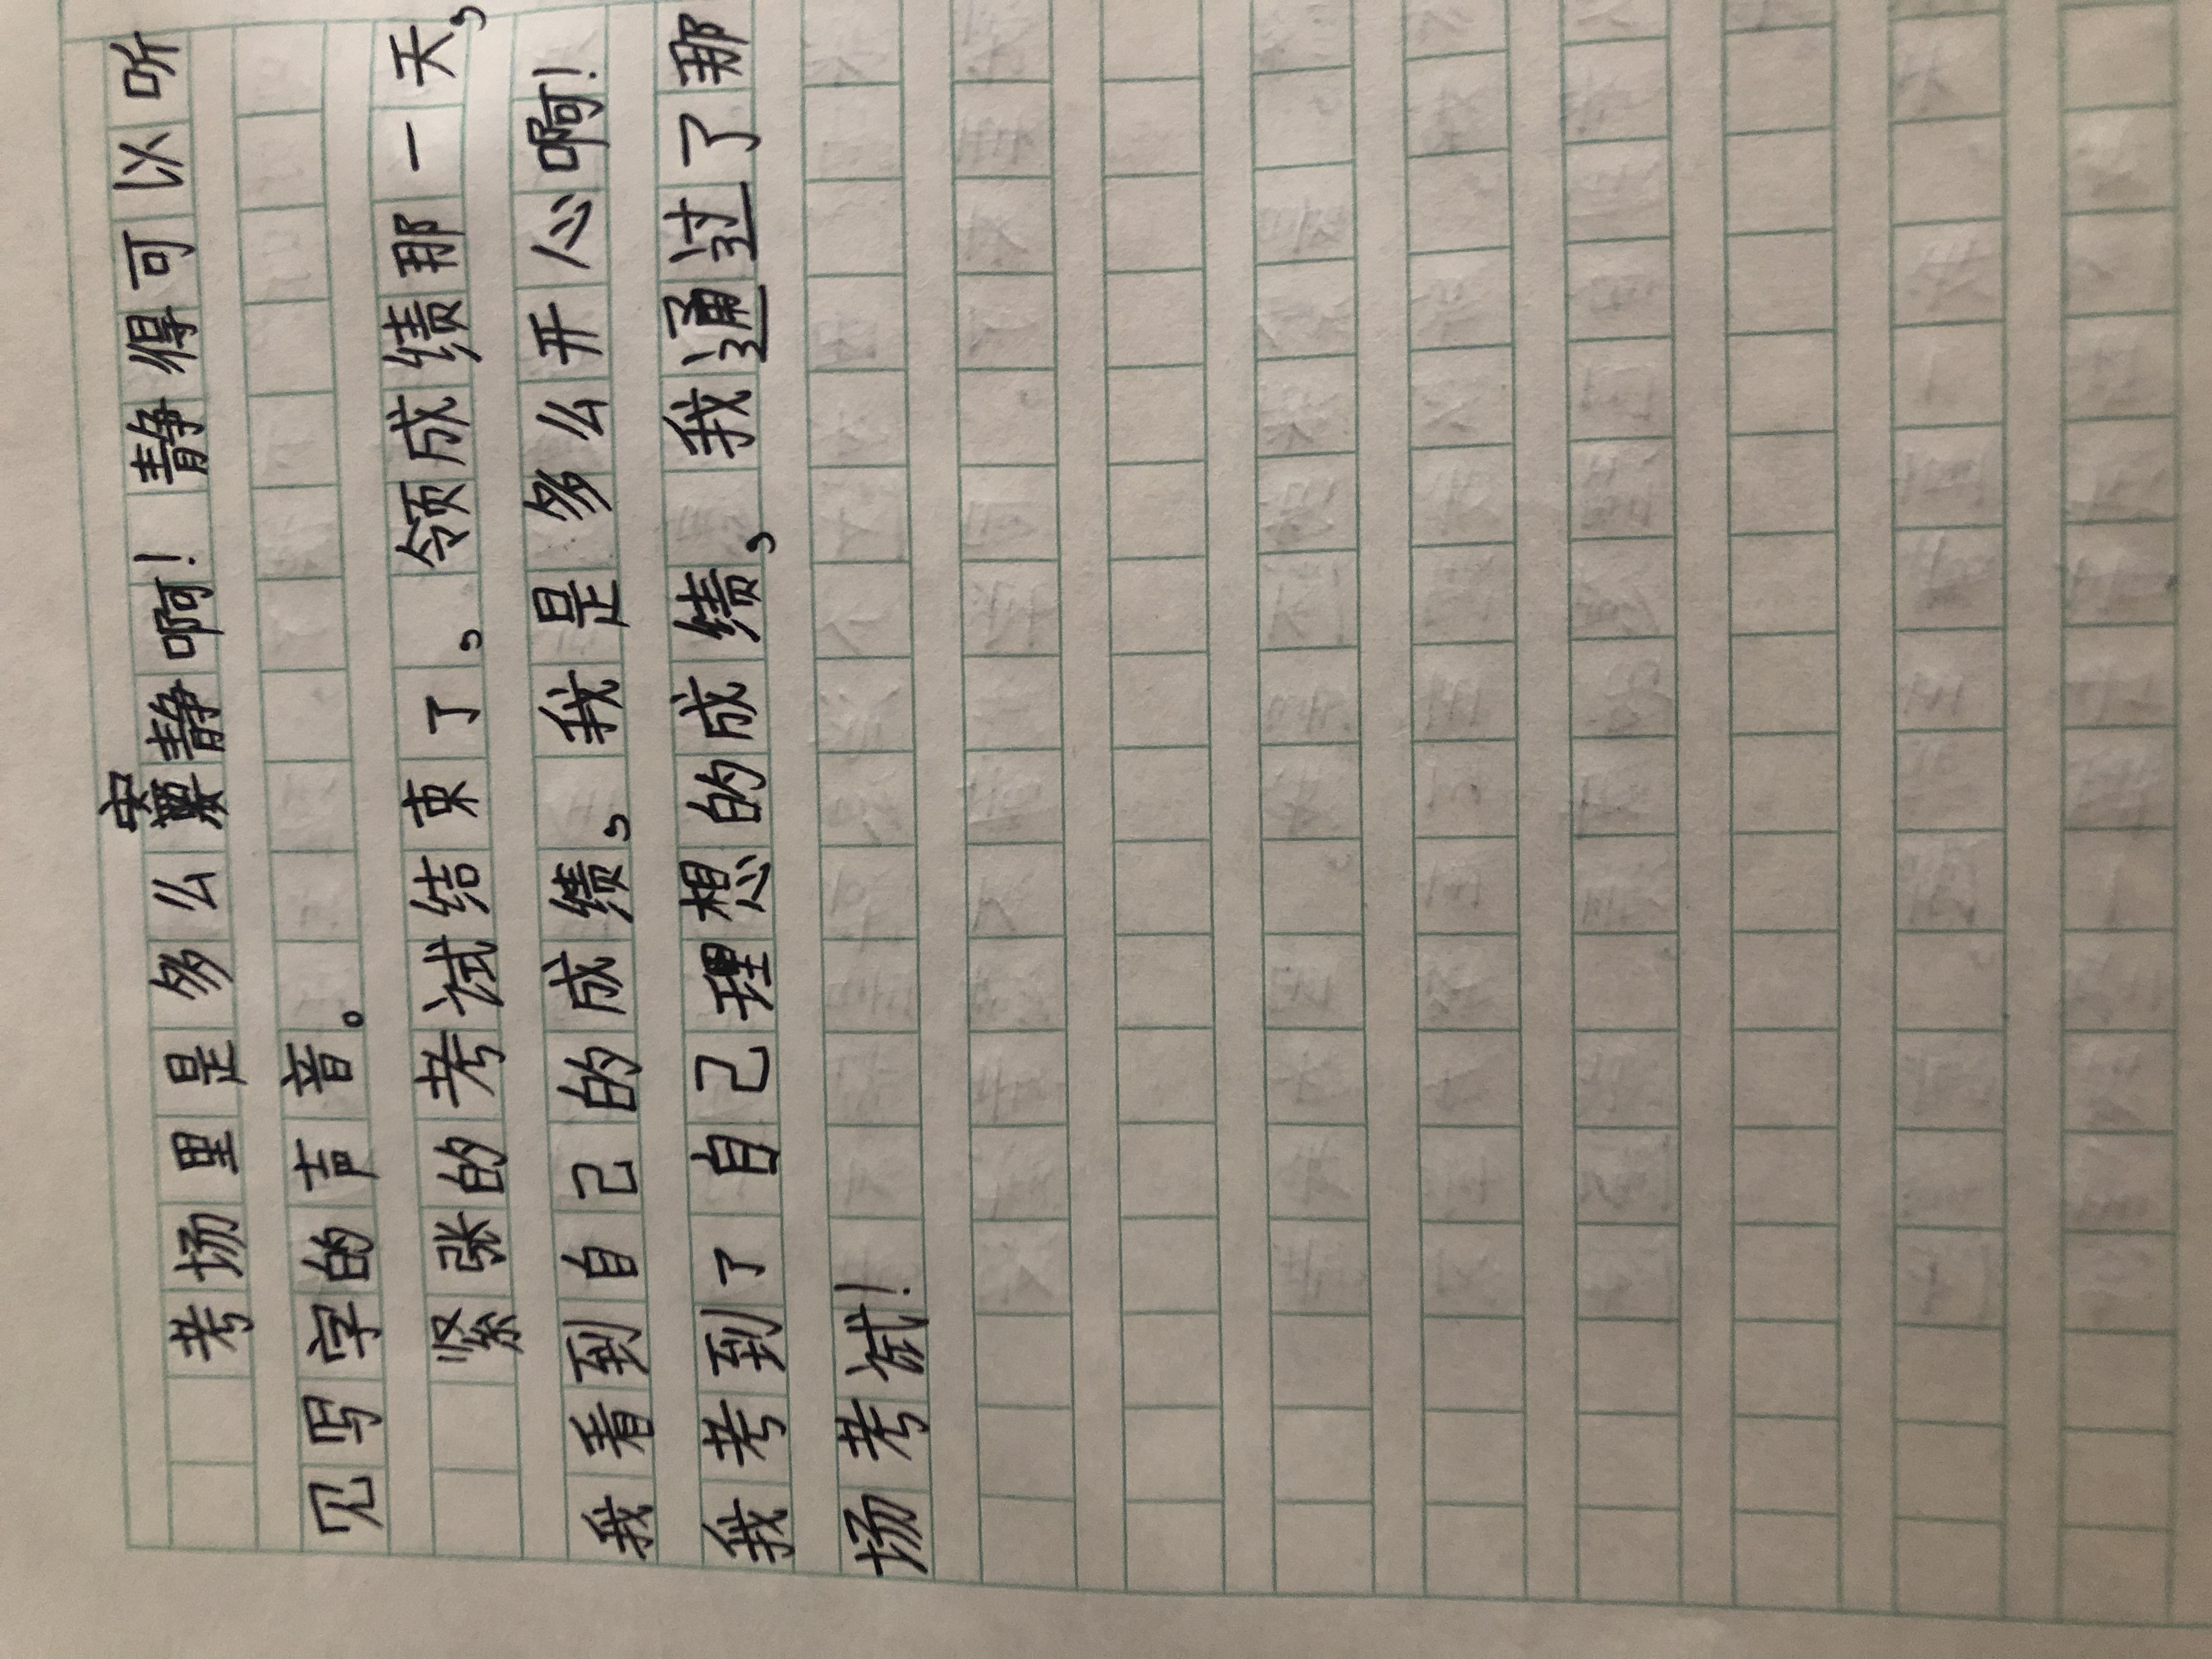 考场里是多么安静啊！静得可以听
见写字的声音。
紧张的考试结束了，领成绩那一天，
我看到自己的成绩，我是多么开心啊！
我考到了自己理想的成绩，我通过了那
场考试！